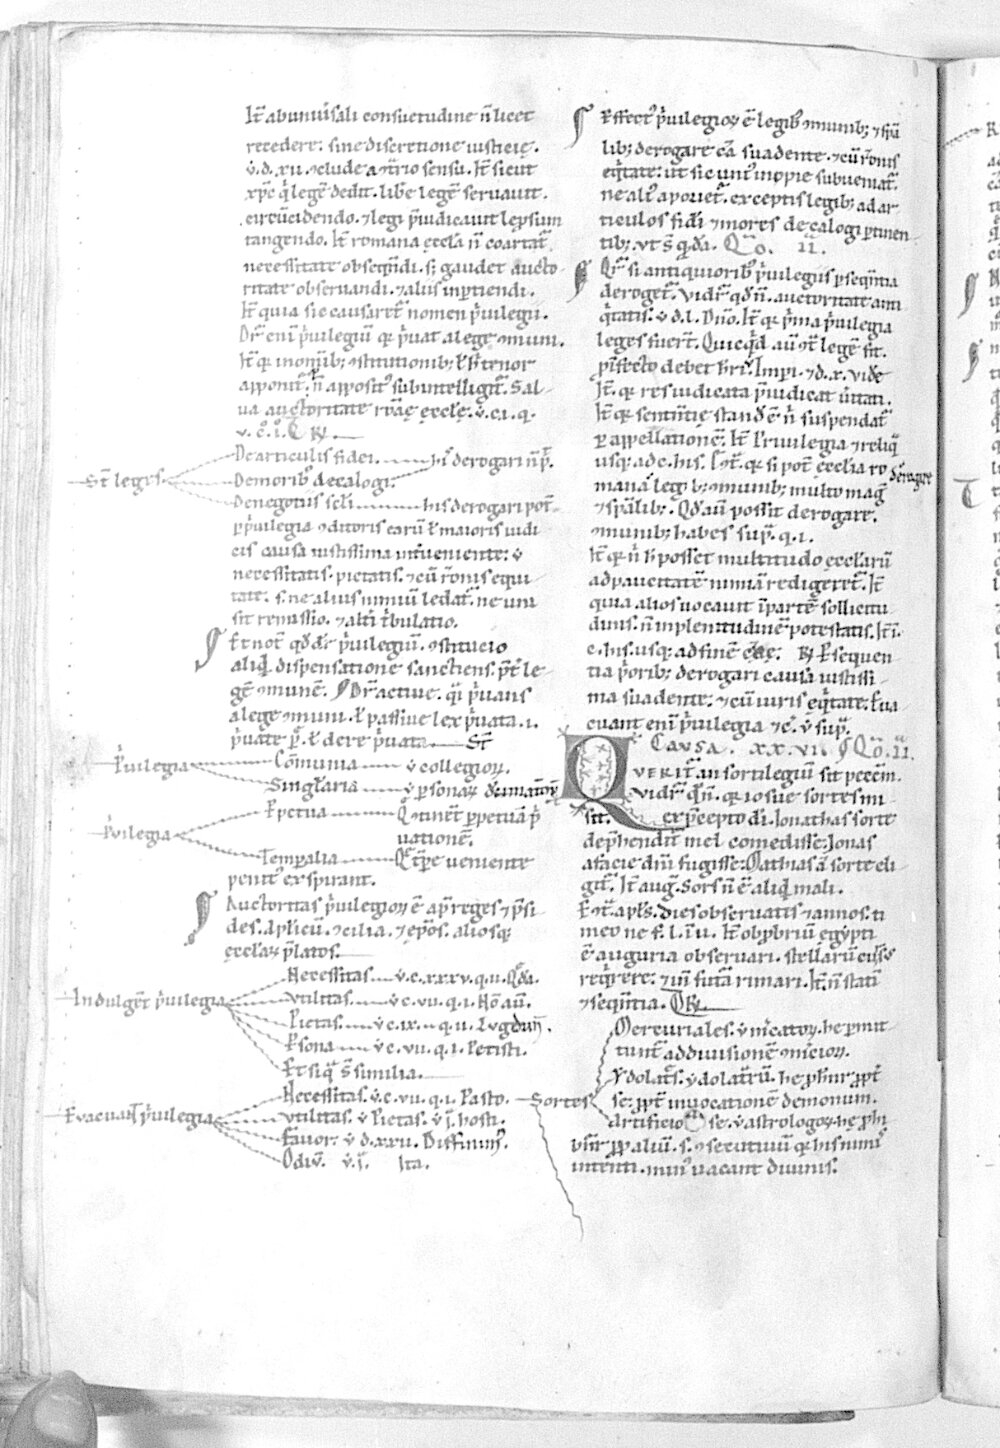 It̄ ab uniu̾sali consuetudine n̄ licet
recedere. sine discretione iusticię.
v̇. d. xii. ⁊clude a ɔ̄trio sensu. It̄ sicut
xp̄c q̇ legē dedit. libe legē seruauit.
circūcidendo. ⁊ legi p̄iudicauit lep̄sum
tangendo. It̄ romana eccła n̄ coartat᷑
necessitate obseq̄ndi. s; gaudet aucto
ritate obseruandi. ⁊ aliis inp̄tiendi.
It̄ quia sic causaret᷑ nomen p̄uilegii.
Dr̄ eni p̄uilegiū qͥ p̄uat a lege ɔmuni.
apponit᷑. n̄ appositꝰ subintelligit᷑. Sal
ua auctoritate rōāę eccłę. v̇. c. i. q.
De articulis fidei. his derogari n̄ p̄.
St̄ leges De moribꝰ decalogi.
De negotiis scłi his derogari pot̄
p p̄uilegia ɔditoris earū ł maioris iudi
cis causa iustissima int̾ueniente: v̇
necessitatis. pietatis. ⁊ cū r̄onis equi
tate. s. ne alius nimiū ledat᷑. ne uni
sit remissio. ⁊ alt̾i t̾bulatio.
Et not̄ qđ dr̄ p̄uilegiū. ɔstitucio
aliq̇ dispensatione sanctiens. p̄t̾ le
gē ɔmunē. Dr̄ actiue. q̄i p̄uans
a lege ɔmuni. ł passiue lex p̄uata. i.
p̄uate p̄. ł de re p̄uata. St̄
P̄uilegia Cōmunia v̇ collegioꝝ.
Singłaria v̇ psonaꝝ
P̄uilegia Ppetua Q̄ ɔtinet᷑ ppetuā p̄
uationē.
Temp̄alia Q̄ tp̄e ueniente
penit̾ exspirant.
Auctoritas p̄uilegioꝝ ē ap̄ reges ⁊ p̄si
des. aplicū. ⁊ cilia. ⁊ ep̄os. aliosq;
ęccłaꝝ p̄latos.
Necessitas v̇. c. xxxv. q. ii. Qđa.
Indulgēt p̄uilegia Vtilitas v̇ c. vii. q. i. Hō aū.
Pietas v̇ c. ix. q. ii. Lugduñ.
Psona v̇ c. vii. q. i. Petisti.
Et siq̄ s̄ similia.
Necessitas. v̇. c. vii. q. i. Pasto.
Euacuant p̄uilegia Vtilitas. v̇ Pietas. v̇ s̄. hosti.
Fauor. v̇ d. xxv. Diffinim̾.
Odiū. v̇. s̄. Ita.
Effectꝰ p̄uilegioꝝ ē legibꝰ ɔmunib; ⁊ spā
lib; derogare cā suadente. ⁊ cū r̄onis
eq̇tate: ut sic uni̾ inopie subueniat᷑.
ne alt̾ apouet᷑. exceptis legib; ad ar
ticulos fidi ⁊ mores decalogi ptinen
tib; vt s̄ qđa. Q̄o. ii.
Qr̄ si antiquioribꝰ p̄uilegiis p seq̄ntia
deroget᷑. Vidr̄ qđ n̄. auctoritate anti
q̇tatis. v̇ d. l. Dn̄o. It̄ qͥ p̄ma p̄uilegia
leges fuer̄t. Quicq̇d aū ɔt̾ legē fit.
p infecto debet hr̄i. Impi. ⁊ d. x. vide
It̄. qͥ res iudicata p̄iudicat ueritati.
It̄. qͥ sententie standū ē n̄ suspendat᷑
p appellationē. It̄ Priuilegia ⁊ reliq̄
usq; ad c. his. It̄. qͥ si pot̄ ecclia ro derogare
mana legib; ɔmunib; multo mag̾
⁊ sp̄alib;. Qđ aū possit derogare.
ɔmunib; habes sup̄. q. i.
It̄ qͥ n̄ h̄ posset multitudo eccłarū
ad paucitatē nimiā redigeret᷑. It̄
quia alios uocauit i partē sollicitu
dinis. n̄ in plenitudinē potestatis. It̄ i.
c. his. usq; ad finē c̄ae. R̷ P sequen
tia p̄orib; derogari causa iustissi
ma suadente: ⁊ cū iuris eq̇tate. Eua
cuant eni p̄uilegia ⁊c̄. v̇ sup̄.
Causa. xxvi. Q̄o. ii.
Qverit᷑ an sortilegiū sit peccm̄.
Vidr̄ q̄ n̄. qͥ iosue sortes mi
sit. ex p̄cepto dī. Ionathas sorte
dep̄hendit᷑ mel comedisse. Ionas
a facie dn̄i fugisse. Mathias ā sorte eli
git᷑. It̄ aug̾. Sors n̄ ē aliq̇ mali.
Ɛ ɔt̾ apłs. dies obseruatis ⁊ annos. ti
meo ne f. l. i u. It̄ obpbriū egypti
ē auguria obseruari. stellarū cursꝰ
req̇rere. ⁊ in̄ futā rimari. It̄. n̄ statī
⁊ seq̄ntia. R̷
Mercuriales. v̇ mercatoꝝ. hę pmit
tunt᷑ ad diuisionē
Ydolat̾s. ydolatrū. hę phibr̄ ppt̾
Sortes se. ppt̾ inuocationē demonum.
Artificio se. v̇ astrologoꝝ. hę phi
bent̾ pp aliū. s. ɔsecutiuū qͥ his nimꝰ
intenti. minꝰ uacant diuinis.